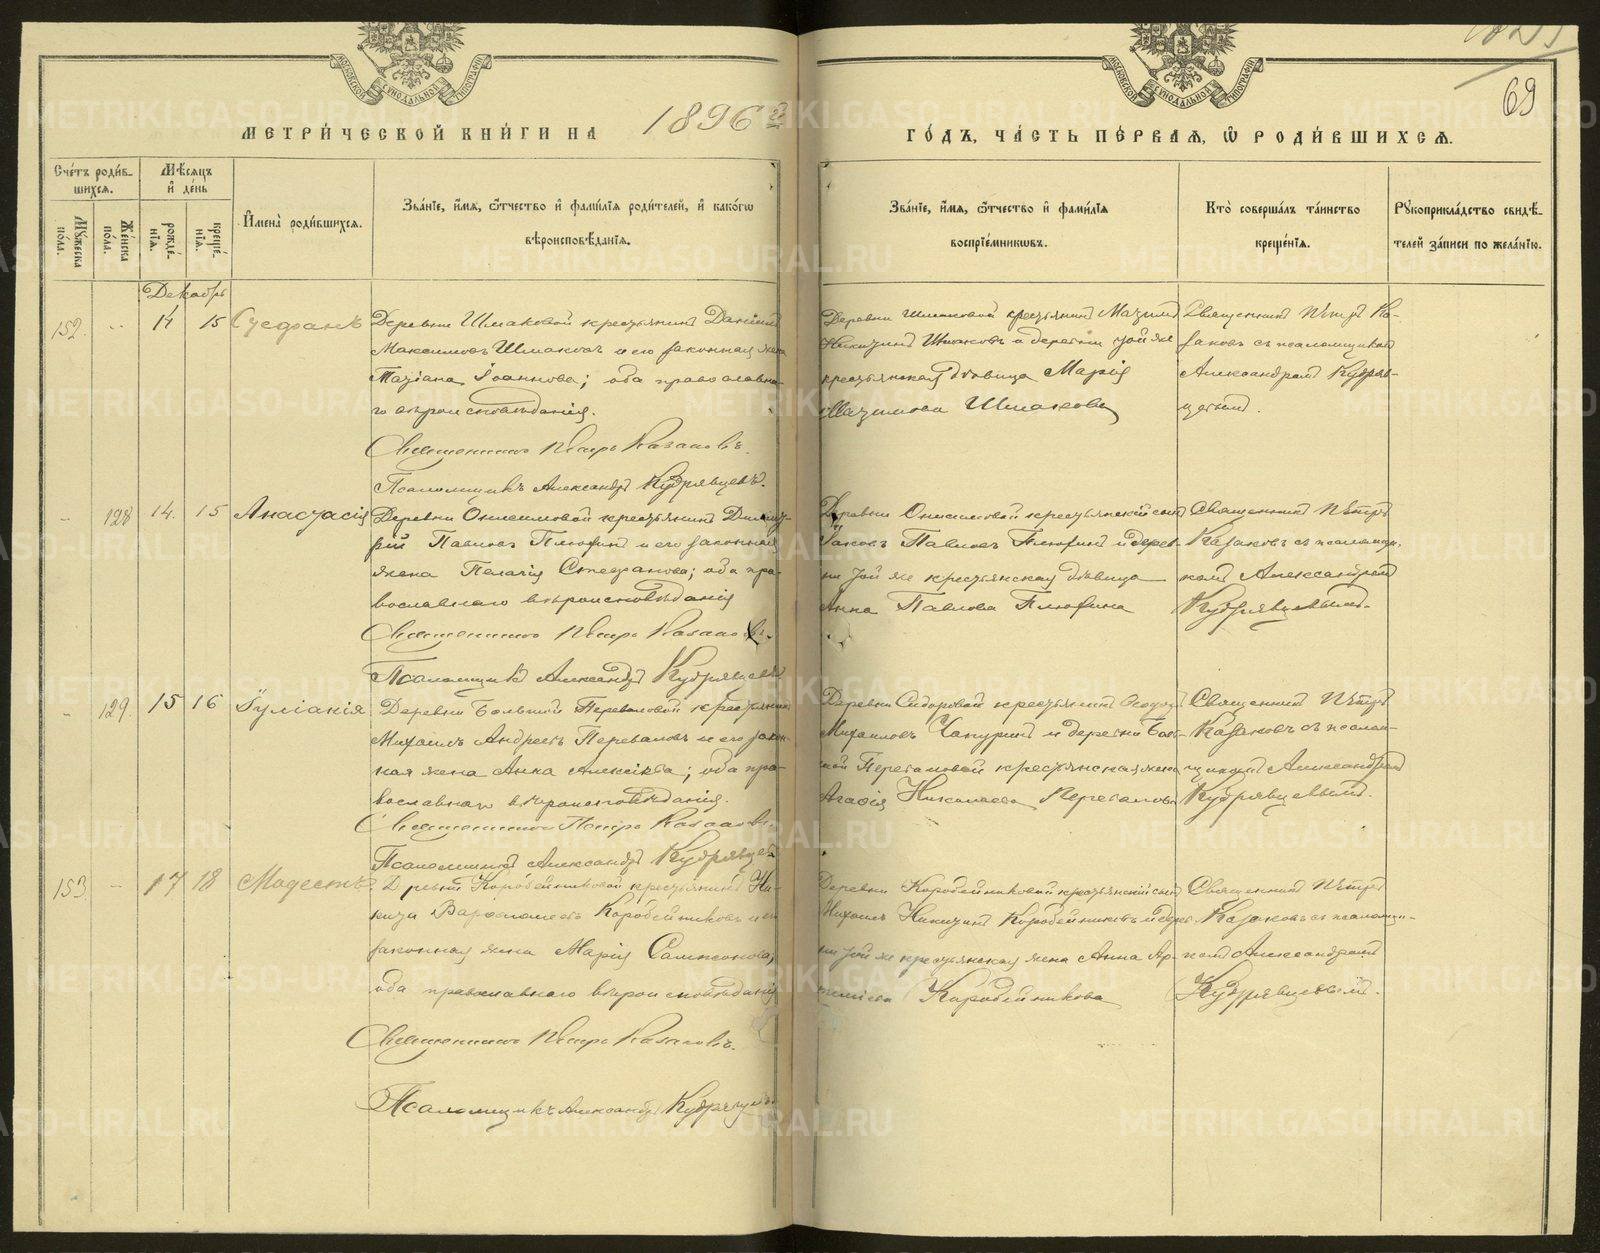 МЕТРИ́ЧЕСКОЙ КНИ́ГИ НА 1896й
ГО́ДЪ, ЧА́СТЬ ПЕ́РВАѦ, Ѡ҆ РОДИ́ВШИХСѦ.
69
МОСКОВСКОЙ СУНОДАЛЬНОЙ ТИПОГРАФІИ
МОСКОВСКОЙ СУНОДАЛЬНОЙ ТИПОГРАФІИ
Сче́тъ роди́в-
шихсѧ.
Мѣ́сѧцъ
и҆ де́нь
Мꙋ́жеска по́ла.
Же́нска по́ла.
рожде́-
нїѧ.
креще́-
нїѧ.
И҆мена̀ роди́вшихсѧ.
Зва́нїе, и҆́мѧ, ѻ҆́тчество и҆ фами́лїѧ роди́телей, и҆ како́гѡ
вѣроисповѣ́данїѧ.
Зва́нїе, и҆́мѧ, ѻ҆́тчество и҆ фами́лїѧ
воспрїе́мникѡвъ.
Кто̀ соверша́лъ та́инство
креще́нїѧ.
Рꙋкоприкла́дство свидѣ́-
телей за́писи по жела́нїю.
Декабрь
152. -- 14 15 Стефанъ
Деревни Шмаковой крестьянинъ Даніилъ
Максимовъ Шмаковъ и его законная жена
Татіана Іоаннова; оба православна-
го вѣроисповѣданія.
Священникъ Петръ Казаковъ.
Псаломщикъ Александръ Кудрявцевъ.
Деревни Шмаковой крестьянинъ
Никитинъ Шмаковъ и деревни той же
крестьянская дѣвица Марія
Шмакова
Священникъ Петръ Ка-
заковъ съ псаломщикомъ
Александромъ Кудряв-
цевымъ.
- 128 14. 15 Анастасія
Деревни Онисимовой крестьянинъ Димит-
рій Павловъ Плюхинъ и его законная
жена Пелагія Стефанова; оба пра-
вославнаго вѣроисповѣданія
Священникъ Петръ Казаковъ.
Псаломщикъ Александръ Кудрявцевъ
Деревни Онисимовой крестьянскій сынъ
Іаковъ Павловъ Плюхинъ и дерев-
ни той же крестьянская дѣвица
Анна Павлова Плюхина
Священникъ Петръ
Казаковъ съ псаломщи-
комъ Александромъ
Кудрявцевымъ.
- 129. 15 16 Іуліанія
Деревни Большой Переваловой крестьянинъ
Михаилъ Андреевъ Переваловъ и его закон-
ная жена Анна Алексіева; оба пра-
вославнаго вѣроисповѣданія.
Священникъ Петръ Казаковъ.
Псаломщикъ Александръ Кудрявцевъ
Деревни Сидоровой крестьянинъ
Михаиловъ Чапуринъ и деревни Боль-
шой Переваловой крестьянская жена
Агафія Николаева Перевалова
Священникъ Петръ
Казаковъ съ псалом-
щикомъ Александромъ
Кудрявцевымъ.
153. - 17 18 Модестъ.
Деревни Коробейниковой крестьянинъ Ни-
кита Варфоломеевъ Коробейниковъ и его
законная жена Марія Сампсонова;
оба православнаго вѣроисповѣданія
Священникъ Петръ Казаковъ.
Псаломщикъ Александръ Кудрявцевъ
Деревни Коробейниковой крестьянскій сынъ
Михаилъ Никитинъ Коробейниковъ и дерев-
ни той же крестьянская жена Анна Ар-
темьева Коробейникова
Священникъ Петръ
Казаковъ съ псаломщи-
комъ Александромъ
Кудрявцевымъ.
METRIKI.GASO-URAL.RU